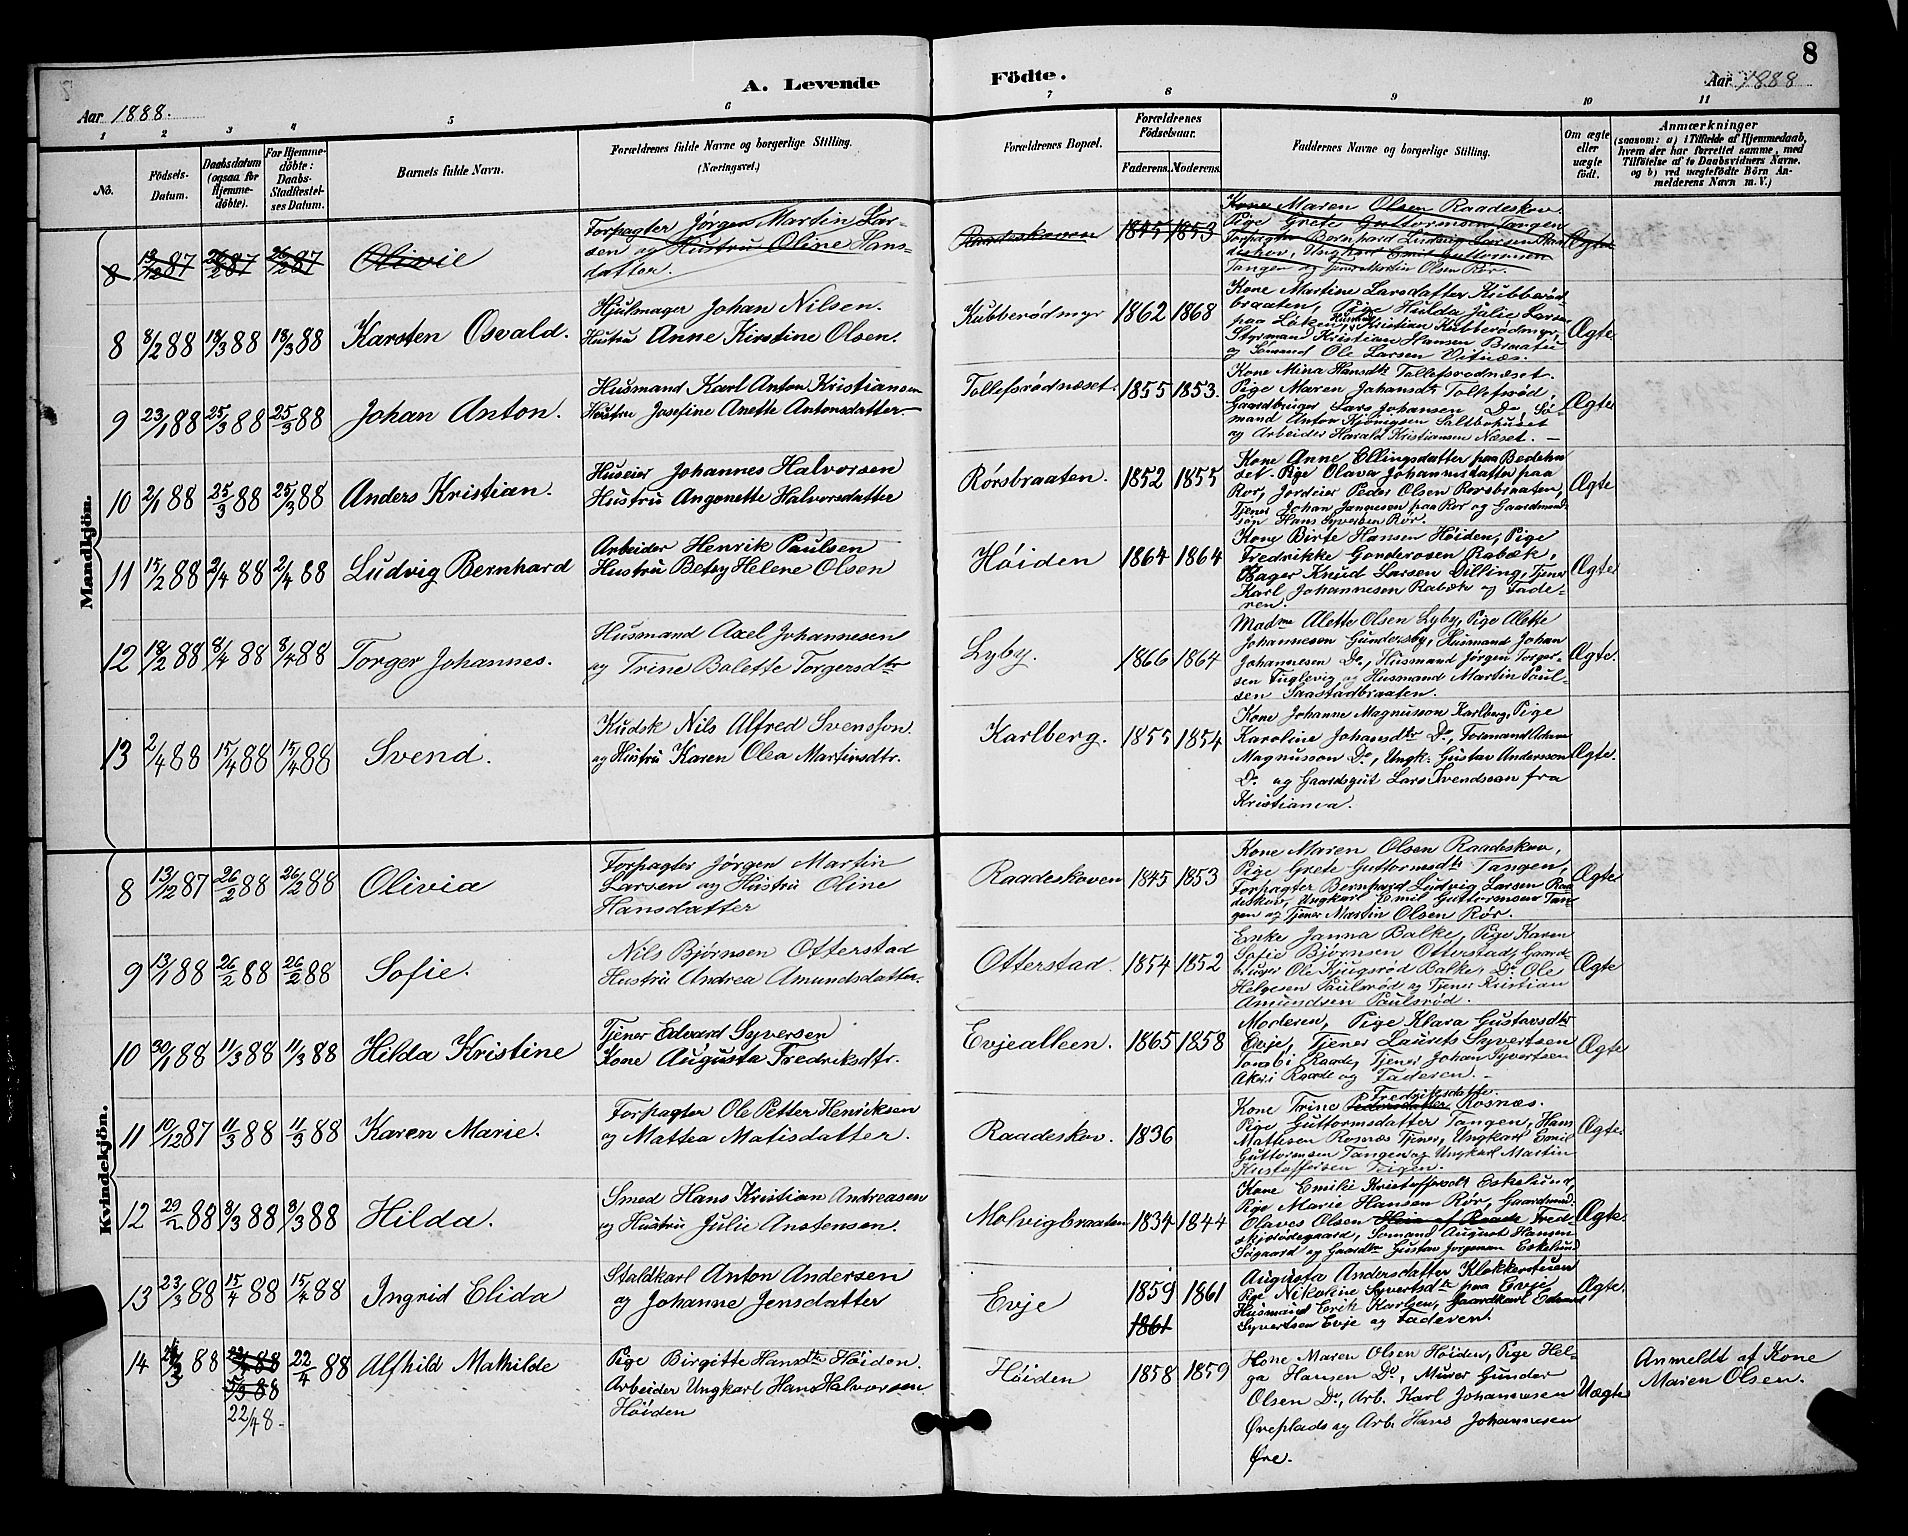 8
A. Levende Födte.
Aar 1888.
Aar 1888
1 2 3 4 5 6 7 8 9 10 11
No.
Födsels-
Datum.
Daabsdatum
(ogsaa for
Hjemme-
döbte).
For Hjemme-
döbte:
Daabs-
Stadfæstel-
ses Datum.
Barnets fulde Navn.
Forældrenes fulde Navne og borgerlige Stilling.
(Næringsvei.)
Forældrenes Bopæl.
Forældrenes
Födselsaar.
Faderens. Moderens.
Faddernes Navne og borgerlige Stilling.
Om ægte
eller
uægte
födt.
Anmærkninger
(saasom: a) i Tilfælde af Hjemmedaab,
hvem der har forrettet samme, med
Tilföielse af to Daabsvidners Navne,
og b) ved uægtefödte Börn An-
melderens Navn m. V.)
Mandkjön.
8 13/12 87 26/2 87 26/2 87 Olivie
Forpagter Jørgen Martin Lar-
sen og Hustru Oline Hans-
datter.
Raadeskoven 1845 1853
Kone Maren Olsen Raadeskov.
Pige Grete Guttormsen Tangen
Forpagter Bernhard Ludvig Larsen Raa-
deskov, Ungkarl Emil Guttormsen
Tangen og Tjener Martin Olsen Rör.
Ægte
8 8/2 88 18/3 88 18/3 88 Karsten Osvald.
Hjulmager Johan Nilsen.
Hustru Anne Kirstine Olsen.
Kubberødmyr 1862 1868
Kone Martine Larsdatter Kubberød-
braaten, Pige Hulda Julie Larsen
paa Löken, Kristian Kubberødmyr,
Styrmand Kristian Hansen Braaten
og Sömand Ole Larsen Vitnæs.
Ægte
9 23/1 88 25/3 88 25/3 88 Johan Anton.
Husmand Karl Anton Kristiansen
Hustru Josefine Anette Antonsdatter.
Tollefsrødnæset. 1855 1853.
Kone Mina Hansdtr Tollefsrødnæset.
Pige Maren Johansdtr Tollefsrød,
Gaardbruger Lars Johansen Do, Sö-
mand Anton Saltbohuset
og Arbeider Harald Kristiansen Næset.
Ægte
10 2/1 88 25/3 88 25/3 88 Anders Kristian.
Huseier Johannes Halvorsen
Hustru Angonette Halvorsdatter
Rørsbraaten. 1852 1855
Kone Anne Ellingsdatter paa Bedehu-
set. Pige Olava Johannesdatter paa
Rør, Jordeier Peder Olsen Rørsbraaten,
Tjener Johan Jannesen paa Rør og Gaardmand-
søn Hans Syversen Rør.
Ægte
11 15/2 88 2/4 88 2/4 88 Ludvig Bernhard
Arbeider Henrik Paulsen
Hustru Betsy Helene Olsen
Høiden 1864 1864
Kone Birte Hansen Høiden, Pige
Fredrikke Gundersen Rabæk,
Bager Knud Larsen Dilling, Tjener
Karl Johannesen Rabæk og Fade-
ren.
Ægte
12 18/2 88 8/4 88 8/4 88 Torger Johannes.
Husmand Axel Johannesen
og Trine Balette Torgersdtr
Lyby. 1866 1864
Madme Alette Olsen Lyby, Pige Alette
Johannesen Gundersby, Husmand Johan
Johannesen Do, Husmand Jørgen Torger-
sen Fuglevig og Husmand Martin Paul-
sen Saastadbraaten.
Ægte.
13 2/4 88 15/4 88 15/4 88 Svend.
Kudsk Nils Alfred Svensson.
og Hustru Karen Olea Martinsdtr.
Karlberg. 1855 1854
Kone Johanne Magnusson Karlberg, Pige
Karoline Johansdtr Do, Formand Adam
Magnusson Do, Ungk. Gustav Andersson
Do og Gaardsgut Lars Svendsen fra
Kristiania.
Ægte.
Kvindekjön.
8 13/12 87 26/2 88 26/2 88 Olivia
Forpagter Jørgen Martin
Larsen og Hustru Oline
Hansdatter
Raadeskoven 1845 1853
Kone Maren Olsen Raadeskov,
Pige Grete Guttormsdtr Tangen,
Forpagter Bernhard Ludvig Larsen Raa-
deskov, Ungkarl Emil Guttormsen Tan-
gen og Tjener Martin Olsen Rør.
Ægte
9 13/1 88 26/2 88 26/2 88 Sofie.
Nils Bjørnsen Otterstad
Hustru Andrea Amundsdatter.
Otterstad. 1854 1852
Enke Janna Balke, Pige Karen
Sofie Bjørnsen Otterstad, Gaard-
bruger Ole Balke, Do Ole
Helgesen Paulsrød og Tjener Kristian
Amundsen Paulsrød.
Ægte
10 30/1 88 11/3 88 11/3 88 Hilda Kristine
Tjener Edvard Syversen
Kone Augusta Fredriksdtr.
Evjealleen. 1865 1858
Moderen, Pige Klara Gustavsdtr
Evje, Tjener Laurits Syvertsen
Tomb i Raade, Tjener Johan Syvertsen
Aker i Raade og Faderen.
Ægte
11 10/12 87 11/3 88 11/3 88 Karen Marie.
Forpagter Ole Petter Henriksen
og Mattea Matisdatter.
Raadeskov. 1836
Fredriksdatter
Kone Trine Pedersdatter Rosnæs.
Pige Guttormsdatter Tangen, Hans
Mathisen Rosnæs Tjener, Ungkarl Emil
Guttormsen Tangen og Ungkarl Martin
Kristoffersen Teigen.
Ægte.
12 29/2 88 8/3 88 8/3 88 Hilda.
Smed Hans Kristian Andreasen
og Hustru Julie Anstensen.
Molvigbraaten 1834 1844
Kone Emilie Kristoffersdtr Eskelund,
Pige Marie Hansen Rør, Gaardmand
Olaves Olsen Heia af Raade Fred-
skjödegaard, Sömand August Hansen
Sögaard og Gaardbr Gustav Jørgensen Eskelund
Ægte.
13 23/3 88 15/4 88 15/4 88 Ingrid Elida
Staldkarl Anton Andersen
og Johanne Jensdatter
Evje 1859 1861
1861
Augusta Andersdatter Klokkerstuen
Pige Nikoline Syvertsdtr paa Evje
Husmand Erik Karlsen, Gaardkarl Edvard
Syvertsen Evje og Faderen.
Ægte.
14 88 22/4 88 Alfhild Mathilde
5/3 88
22/4 8
Pige Birgitte Hansdtr Høiden.
Arbeider Ungkarl Hans Halvorsen
Høiden
Høiden 1858 1859
Kone Maren Olsen Høiden, Pige Hel-
ga Hansen Do, Murer Gunder
Olsen Do, Arb. Karl Johannesen
Øreplads og Arb. Hans Johannesen
Øre.
Uægte
Anmeldt af Kone
Maren Olsen.